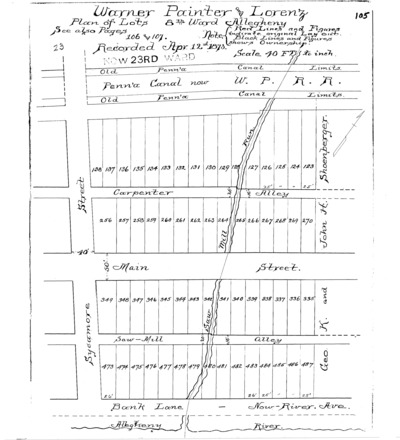 Warner Painter & Lorenz
Plan of Lots 8th Ward Allegheny
105
See also Pages
106 & 107.
Note: Red Lines and Figures
indicate original Lay out.
Black Lines and Figures
shows Ownership.
23
Recorded Apr 12th 1873.
Scale 40 FT. to inch.
NOW 23RD WARD
Old Penn'a Canal Limits
Penn'a Canal now W. P. R. R.
Old Penn'a Canal Limits.
138 137 136 135 134 133 132 131 130 129 128 127 126 125 124 123
Carpenter Alley
256 257 258 259 260 261 262 263 264 265 266 267 268 269 270
Main Street.
50'
349 348 347 346 345 344 343 342 341 340 339 338 337 336 335
Saw-Mill Alley
473 474 475 476 477 478 479 480 481 482 483 484 485 486 487
Bank Lane - Now River Ave.
Allegheny River.
Sycamore Street
40'
Saw Mill Run
Geo K. and John H. Shoenberger